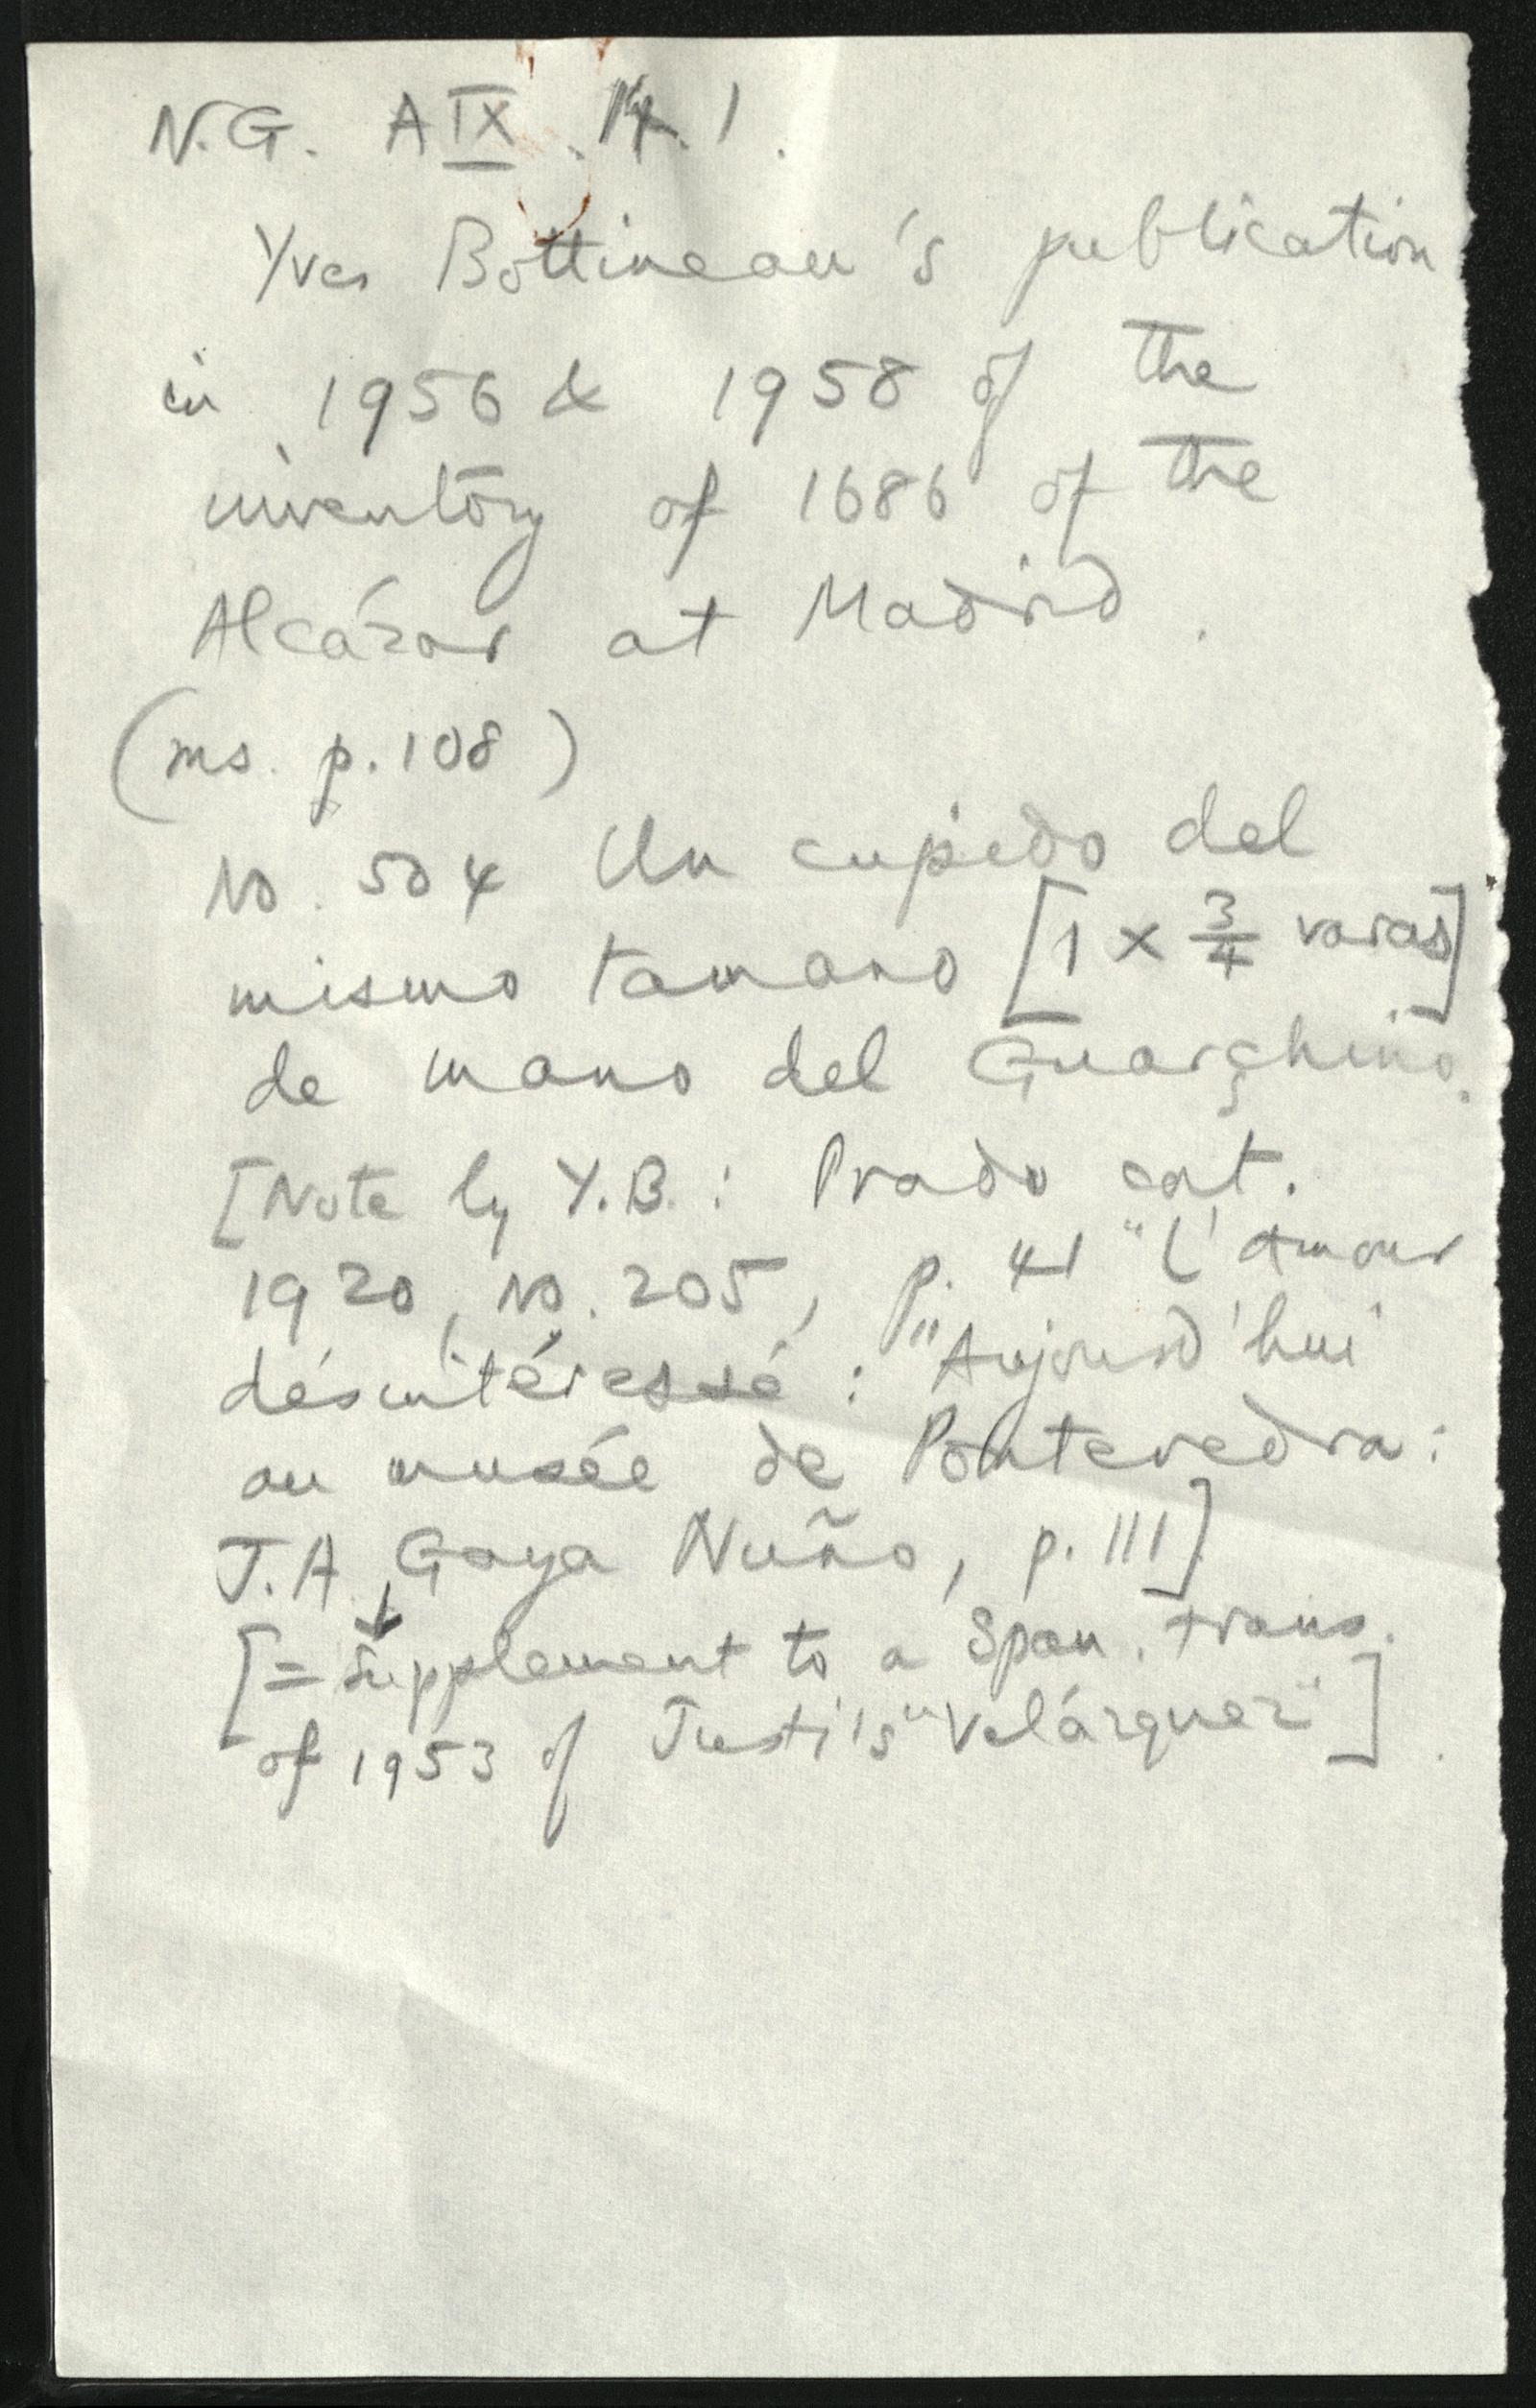 N.G. A IX . 1 .
Yves Bottineau's publication
in 1956 & 1958 of the
inventory of 1686 of the
Alcázar at Madrid .
(ms. p. 108)
No. 504 Un cupido del
mismo tamano [1 x 3/4 varas]
de mano del Guarghino.
[Note by Y.B. : Prado cat.
1920, No. 205, p. 41 "L'amour
désintéressé : "Aujourd'hui
au musée de Pontevedra :
J.A. Gaya Nuño, p. 111]
[= Supplement to a Span. trans.
of 1953 of Justi's "Velázquez"] .